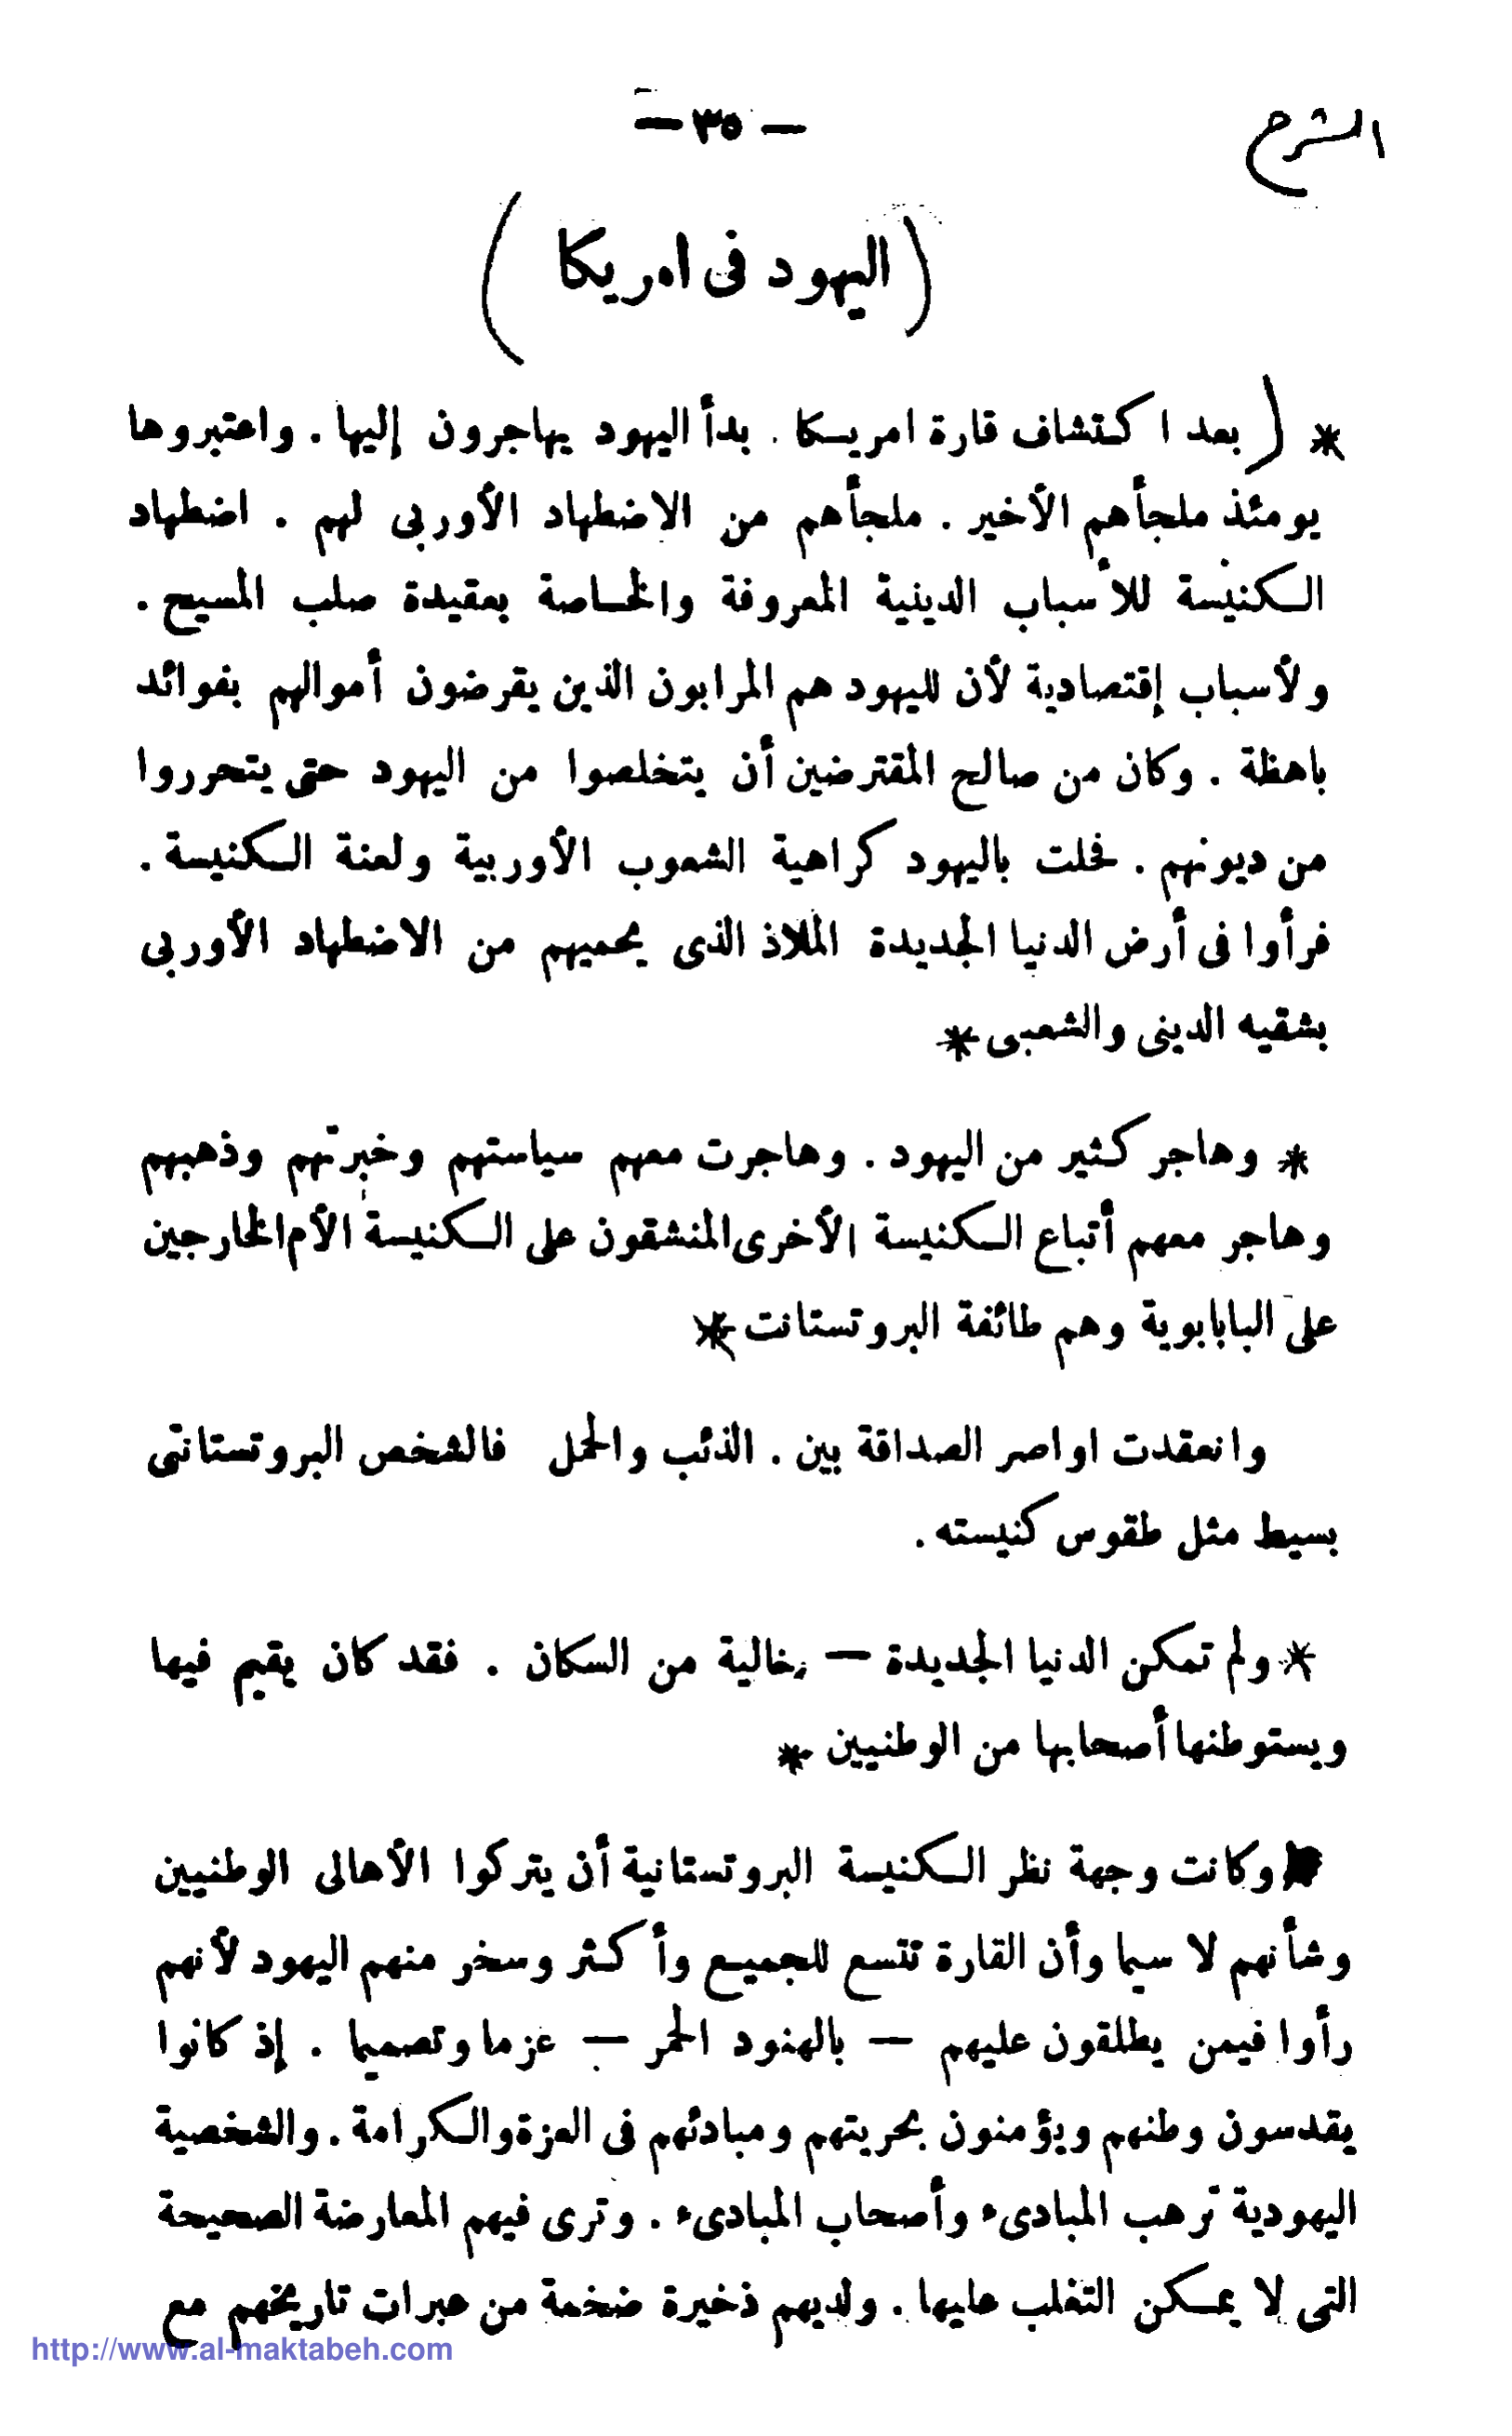 الشرح
— ٣٥ —
( اليهود فى امريكا )
* ( بعد اكتشاف قارة امريكا . بدأ اليهود يهاجرون إليها . واعتبروها
يومئذ ملجأهم الأخير . ملجأهم من الاضطهاد الأوربى لهم . اضطهاد
الكنيسة للأسباب الدينية المعروفة والخاصة بعقيدة صلب المسيح .
ولأسباب إقتصادية لأن لليهود هم المرابون الذين يقرضون أموالهم بفوائد
باهظة . وكان من صالح المقترضين أن يتخلصوا من اليهود حتى يتحرروا
من ديونهم . فحلت باليهود كراهية الشعوب الأوربية ولعنة الكنيسة .
فرأوا فى أرض الدنيا الجديدة الملاذ الذى يحميهم من الاضطهاد الأوربى
بشقيه الدينى والشعبى *
* وهاجر كثير من اليهود . وهاجرت معهم سياستهم وخبرتهم وذهبهم
وهاجر معهم أتباع الكنيسة الأخرى المنشقون على الكنيسة الأم الخارجين
على البابابوية وهم طائفة البروتستانت *
وانعقدت اواصر الصداقة بين . الذئب والحمل فالشخص البروتستانتى
بسيط مثل طقوس كنيسته .
* ولم تمكن الدنيا الجديدة — خالية من السكان . فقد كان يقيم فيها
ويستوطنها أصحابها من الوطنيين *
وكانت وجهة نظر الكنيسة البروتستانية أن يتركوا الأهالى الوطنيين
وشأنهم لا سيما وأن القارة تتسع للجميع وأكثر وسخر منهم اليهود لأنهم
رأوا فيمن يطلقون عليهم — بالهنود الحمر — عزما وتصميما . إذ كانوا
يقدسون وطنهم ويؤمنون بحريتهم ومبادئهم فى العزة والكرامة . والشخصية
اليهودية ترهب المبادىء وأصحاب المبادىء . وترى فيهم المعارضة الصحيحة
التى لا يمكن التغلب عليها . ولديهم ذخيرة ضخمة من عبرات تاريخهم مع
http://www.al-maktabeh.com